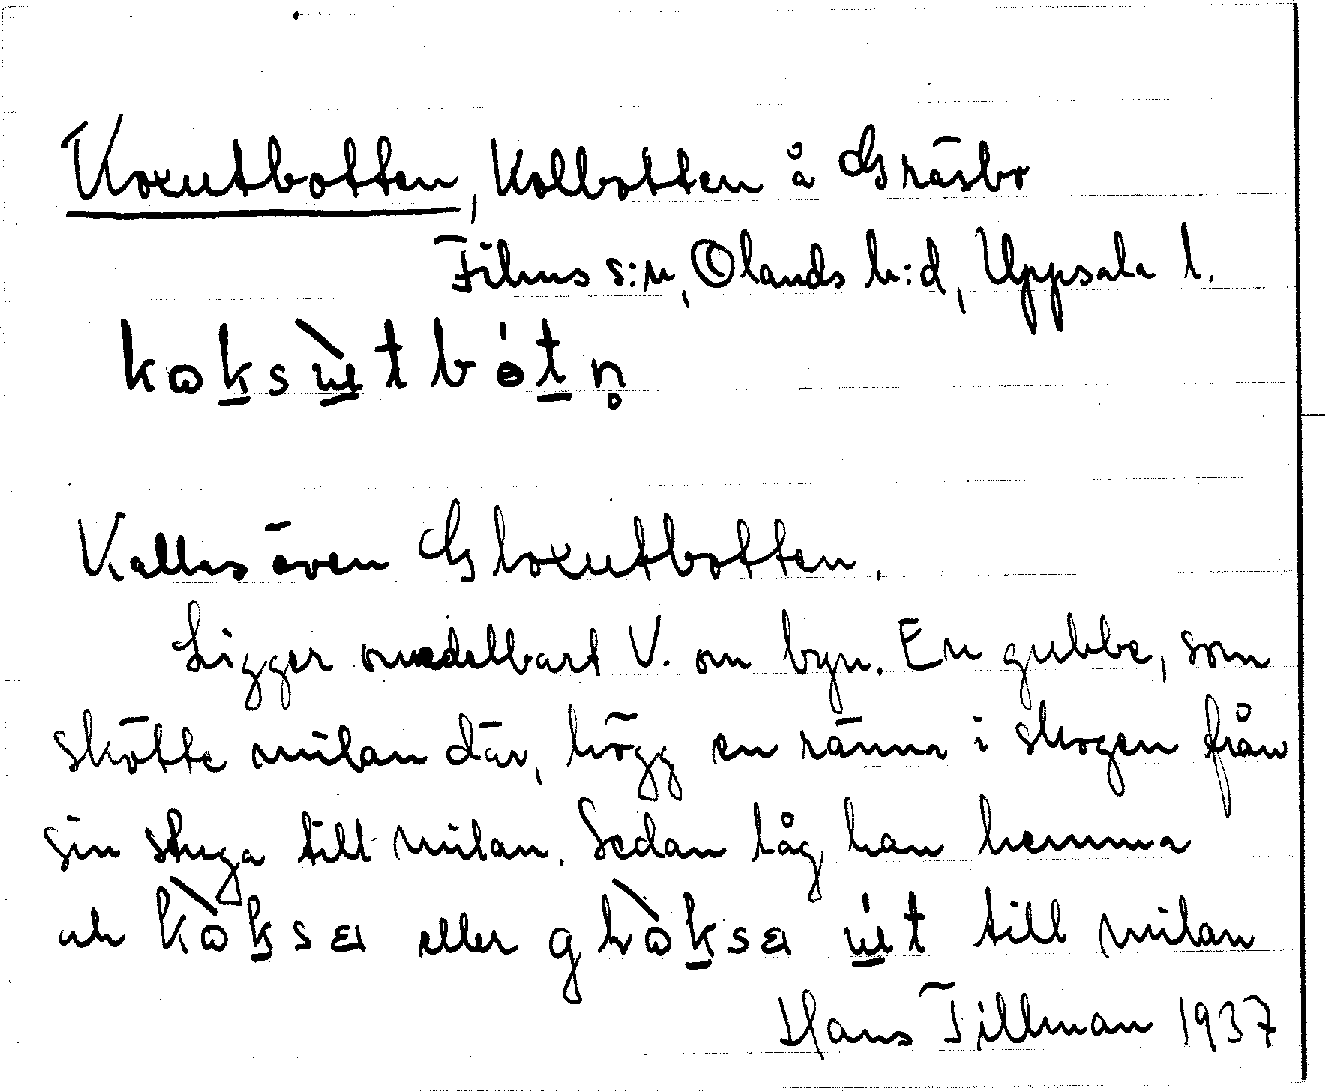 Koxutbotten, Kolbotten å Gräsbo
Films s:n, Olands h:d, Uppsala l.
kɷksùtbótn̥
Kallas även Gloxutbotten.
Ligger omedelbart V. om byn. En gubbe, som
skötte milan där, högg en ränna i skogen från
sin stuga till milan. Sedan låg han hemma
och kɷ̀ksa eller glɷ̀ksa út till milan
Hans Tillman 1937